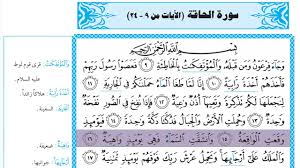 سورة الحاقة (الآيات من ٩ - ٢٤)
بِسْمِ ٱللَّهِ ٱلرَّحْمَٰنِ ٱلرَّحِيمِ
وَجَآءَ فِرْعَوْنُ وَمَن قَبْلَهُۥ وَٱلْمُؤْتَفِكَٰتُ بِٱلْخَاطِئَةِ ٩ فَعَصَوْا۟ رَسُولَ رَبِّهِمْ
فَأَخَذَهُمْ أَخْذَةً رَّابِيَةً ١٠ إِنَّا لَمَّا طَغَا ٱلْمَآءُ حَمَلْنَٰكُمْ فِى ٱلْجَارِيَةِ ١١
لِنَجْعَلَهَا لَكُمْ تَذْكِرَةً وَتَعِيَهَآ أُذُنٌ وَٰعِيَةٌ ١٢ فَإِذَا نُفِخَ فِى ٱلصُّورِ
نَفْخَةٌ وَٰحِدَةٌ ١٣ وَحُمِلَتِ ٱلْأَرْضُ وَٱلْجِبَالُ فَدُكَّتَا دَكَّةً وَٰحِدَةً ١٤ فَيَوْمَئِذٍ
وَقَعَتِ ٱلْوَاقِعَةُ ١٥ وَٱنشَقَّتِ ٱلسَّمَآءُ فَهِىَ يَوْمَئِذٍ وَاهِيَةٌ ١٦
وَٱلْمَلَكُ عَلَىٰٓ أَرْجَآئِهَا وَيَحْمِلُ عَرْشَ رَبِّكَ فَوْقَهُمْ يَوْمَئِذٍ
وَٱلْمُؤْتَفِكَٰتُ : قرى قوم لوط
عليه السلام.
أَخْذَةً رَّابِيَةً : هلاكاً زائداً.
ٱلْجَارِيَةِ : السفينة.